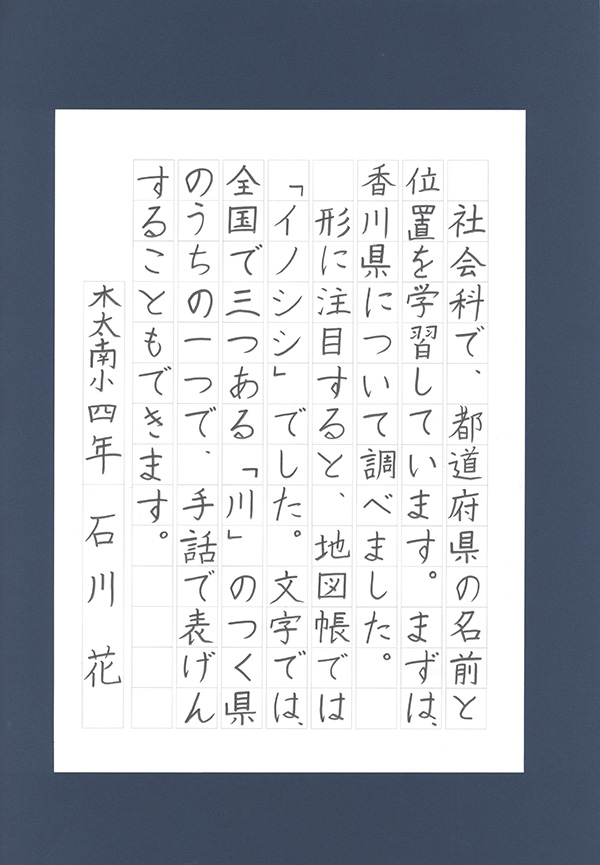 社会科で、都道府県の名前と
位置を学習しています。まずは、
香川県について調べました。
形に注目すると、地図帳では
「イノシシ」でした。文字では、
全国で三つある「川」のつく県
のうちの一つで、手話で表げん
することもできます。
木太南小四年 石川花